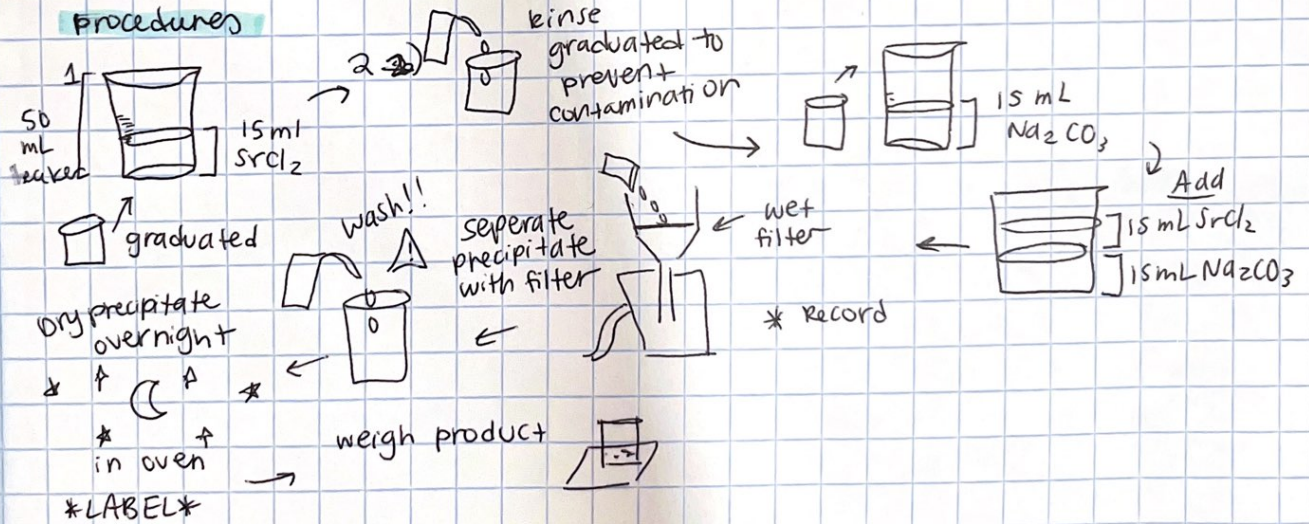 procedures
1
50
mL
beaker
15 ml
SrCl2
graduated
2
rinse
graduated to
prevent
contamination
15 mL
Na2CO3
Add
15 mL SrCl2
15mL Na2CO3
wet
filter
* Record
seperate
precipitate
with filter
wash!!
!
Dry precipitate
overnight
in oven
*LABEL*
weigh product